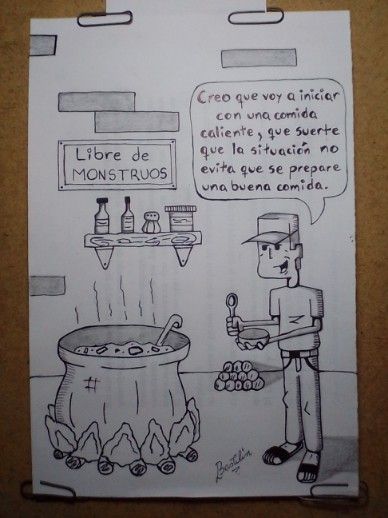 Creo que voy a iniciar
con una comida
caliente, que suerte
que la situación no
evita que se prepare
una buena comida.
Libre de
MONSTRUOS